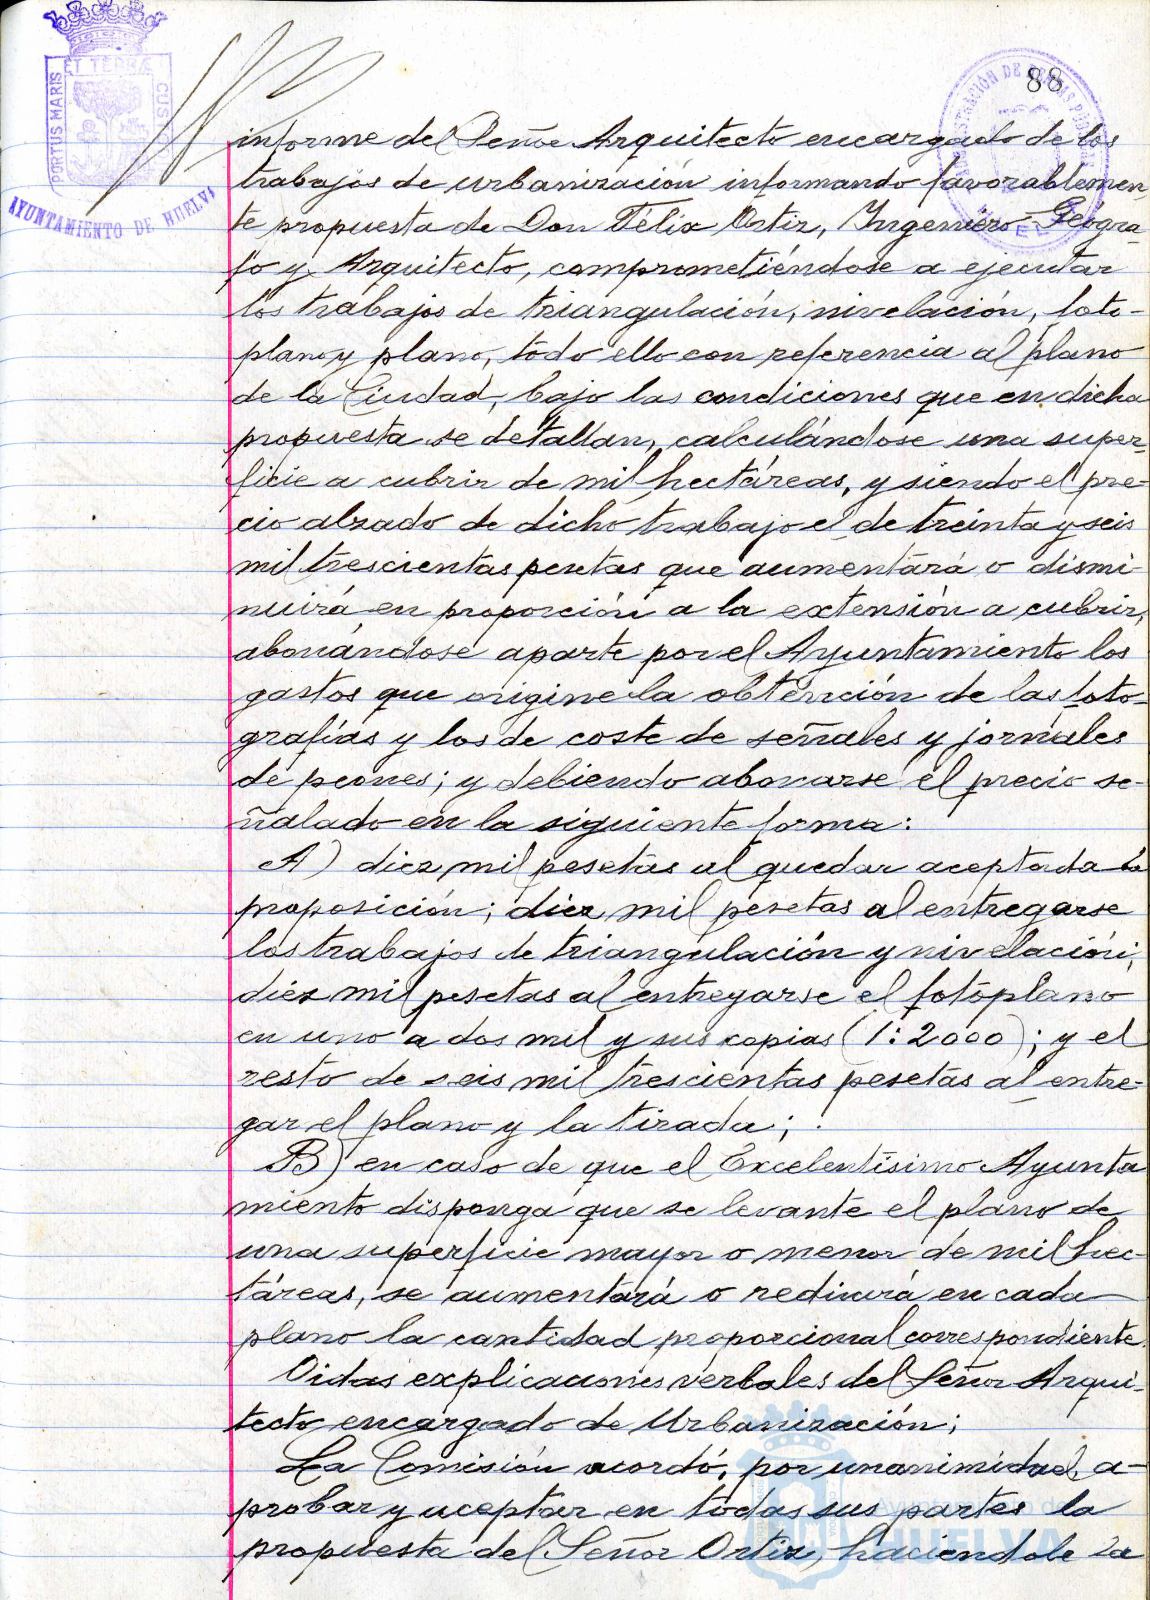 88
PORTUS MARIS ET TERRÆ CUSTODIA
AYUNTAMIENTO DE HUELVA
informe del Señor Arquitecto encargado de los
trabajos de urbanización informando favorablemen-
te propuesta de Don Félix Ortiz, Ingeniero-Geógra-
fo y Arquitecto, comprometiéndose a ejecutar
los trabajos de triangulación, nivelación, foto-
plano y plano, todo ello con referencia al plano
de la Ciudad, bajo las condiciones que en dicha
propuesta se detallan, calculándose una super-
ficie a cubrir de mil hectáreas, y siendo el pre-
cio alzado de dicho trabajo el de treinta y seis
mil trescientas pesetas que aumentará o dismi-
nuirá en proporción a la extensión a cubrir,
abonándose aparte por el Ayuntamiento los
gastos que origine la obtención de las foto-
grafías y los de coste de señales y jornales
de peones; y debiendo abonarse el precio se-
ñalado en la siguiente forma:
A) diez mil pesetas al quedar aceptada la
proposición; diez mil pesetas al entregarse
los trabajos de triangulación y nivelación;
diez mil pesetas al entregarse el fotoplano
en uno a dos mil y sus copias (1:2000); y el
resto de seis mil trescientas pesetas al entre-
gar el plano y la tirada;
B) en caso de que el Excelentísimo Ayunta
miento disponga que se levante el plano de
una superficie mayor o menor de mil hec-
táreas, se aumentará o reducirá en cada
plano la cantidad proporcional correspondiente.
Oidas explicaciones verbales del Señor Arqui-
tecto encargado de Urbanización;
La Comisión acordó, por unanimidad, a-
probar y aceptar en todas sus partes la
propuesta del Señor Ortiz, haciendole la
Ayuntamiento de
HUELVA